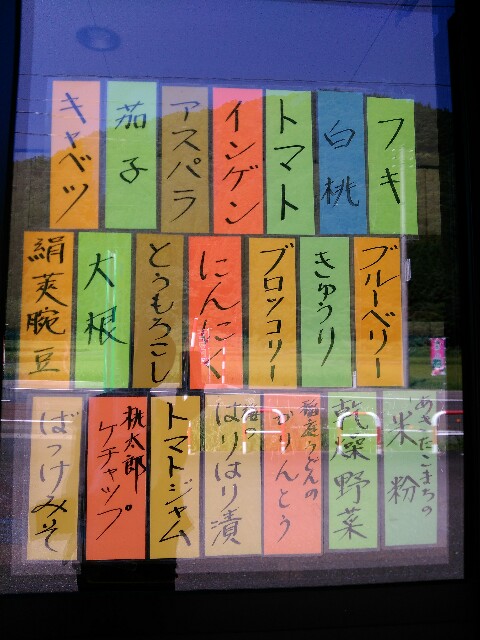 フキ
白桃
トマト
インゲン
アスパラ
茄子
キャベツ
ブルーベリー
きゅうり
ブロッコリー
にんにく
とうもろこし
大根
絹莢腕豆
あきたこまちの
米粉
乾燥野菜
稲庭うどんの
かりんとう
はりはり漬
トマトジャム
桃太郎
ケチャップ
ばっけみそ